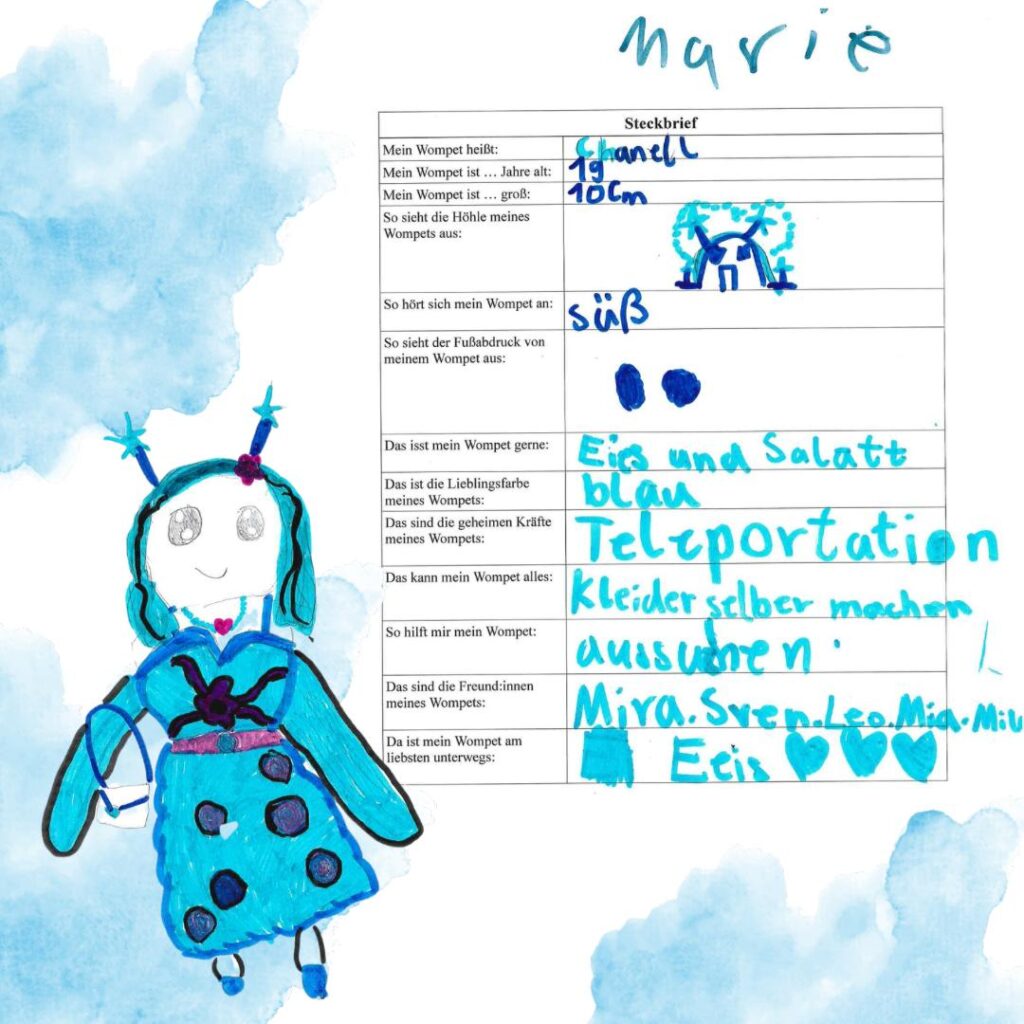 Marie
Steckbrief
Mein Wompet heißt: Chanell
Mein Wompet ist … Jahre alt: 19
Mein Wompet ist … groß: 10Cm
So sieht die Höhle meines
Wompets aus:
So hört sich mein Wompet an: süß
So sieht der Fußabdruck von
meinem Wompet aus:
Das isst mein Wompet gerne: Eies und Salatt
Das ist die Lieblingsfarbe
meines Wompets: blau
Das sind die geheimen Kräfte
meines Wompets: Teleportation
Das kann mein Wompet alles: Kleider selber machen
So hilft mir mein Wompet: aussuhen.
Das sind die Freund:innen
meines Wompets: Mira.Sven.Leo.Mia.
Da ist mein Wompet am
liebsten unterwegs: Eeis